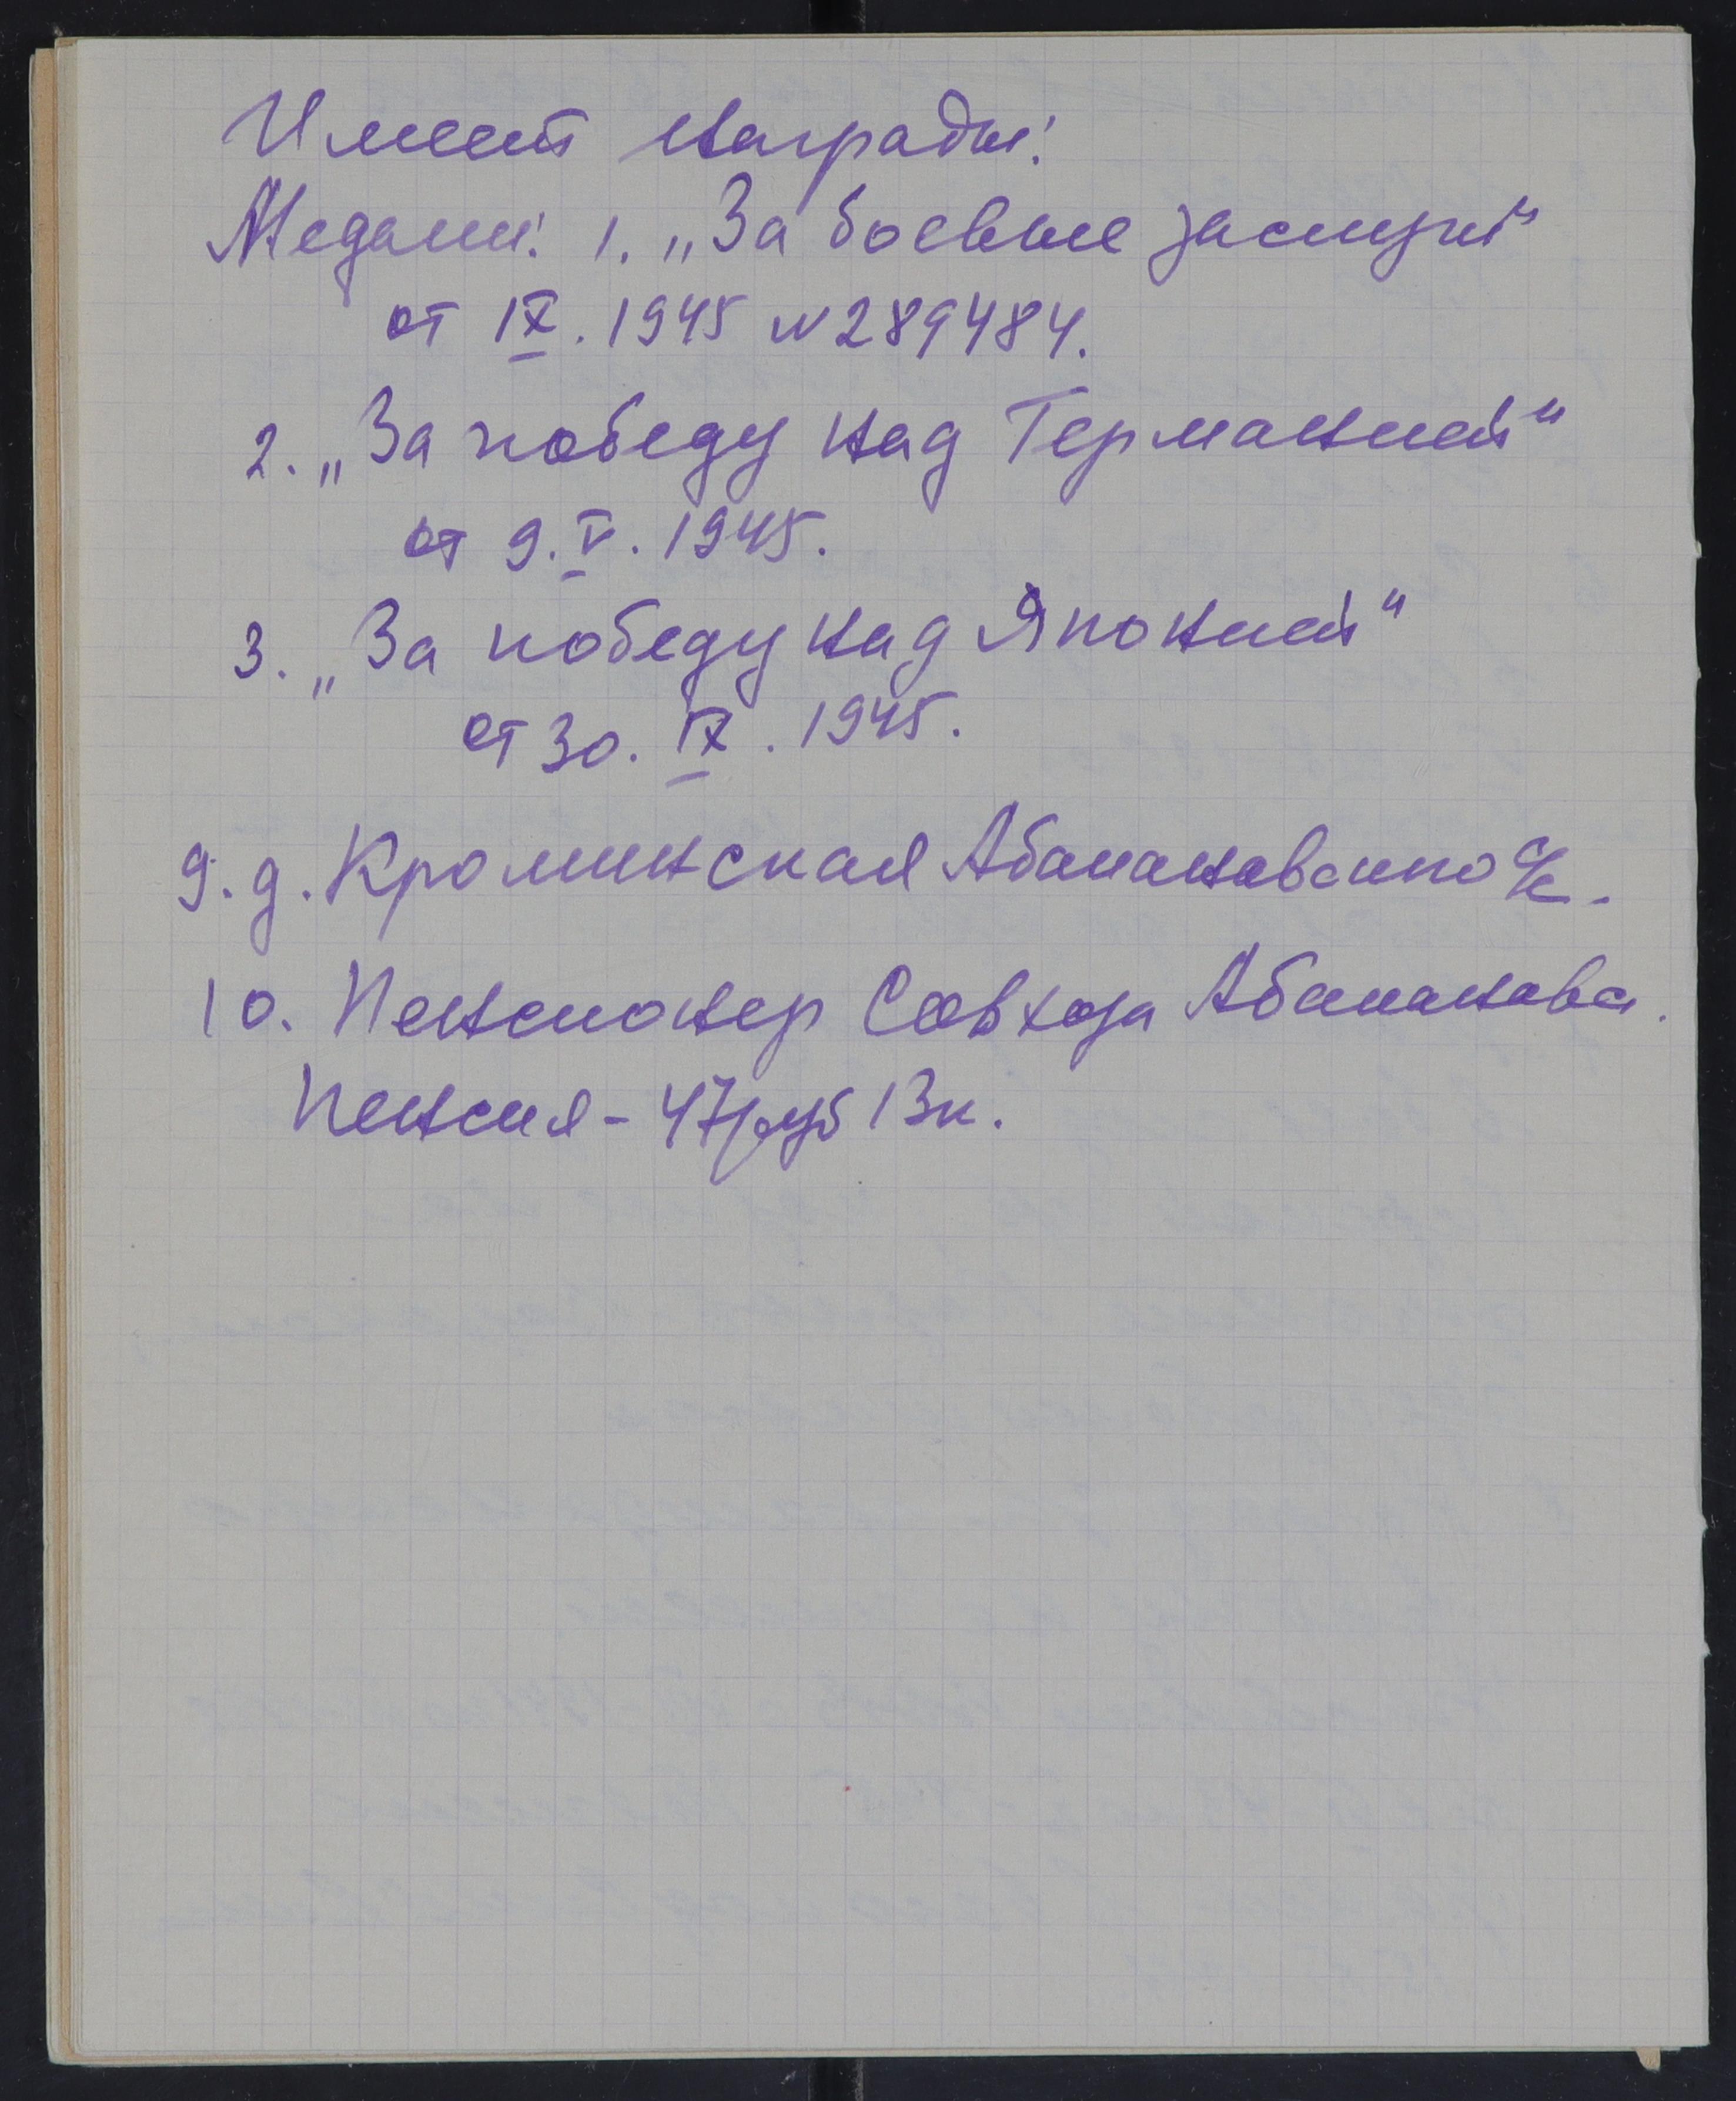 Имеет награды:
Медали: 1. „За боевые заслуги"
от IX. 1945 N 289484.
2. „За победу над Германией"
от 9. V. 1945.
3. „За победу над Японией"
от 30. IX. 1945.
9. д. Кроминская Абакановского с/с.
10. Пенсионер Совхоза Абаканово.
Пенсия - 47руб 13к.